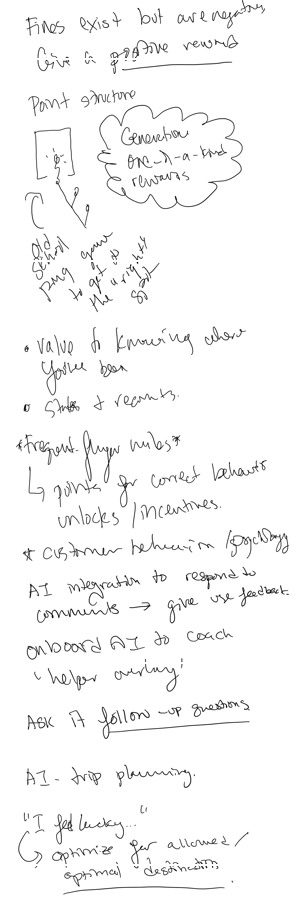 Fines exist but are negative,
Give a positive reward
Point structure
Generation
one-of-a-kind
rewards
old
school
game
to get it
the right
spot
• value to knowing where
you've been
• stats & recounts.
*frequent flyer miles*
↳ points for correct behavior
unlocks/incentives.
* customer behavior/psychology
AI integration to respond to
comments → give use feedback.
onboard AI to coach
'helper overlay'
ASK it follow-up questions
AI - trip planning.
"I feel lucky..."
↳ optimize for allowed/
optimal destination.